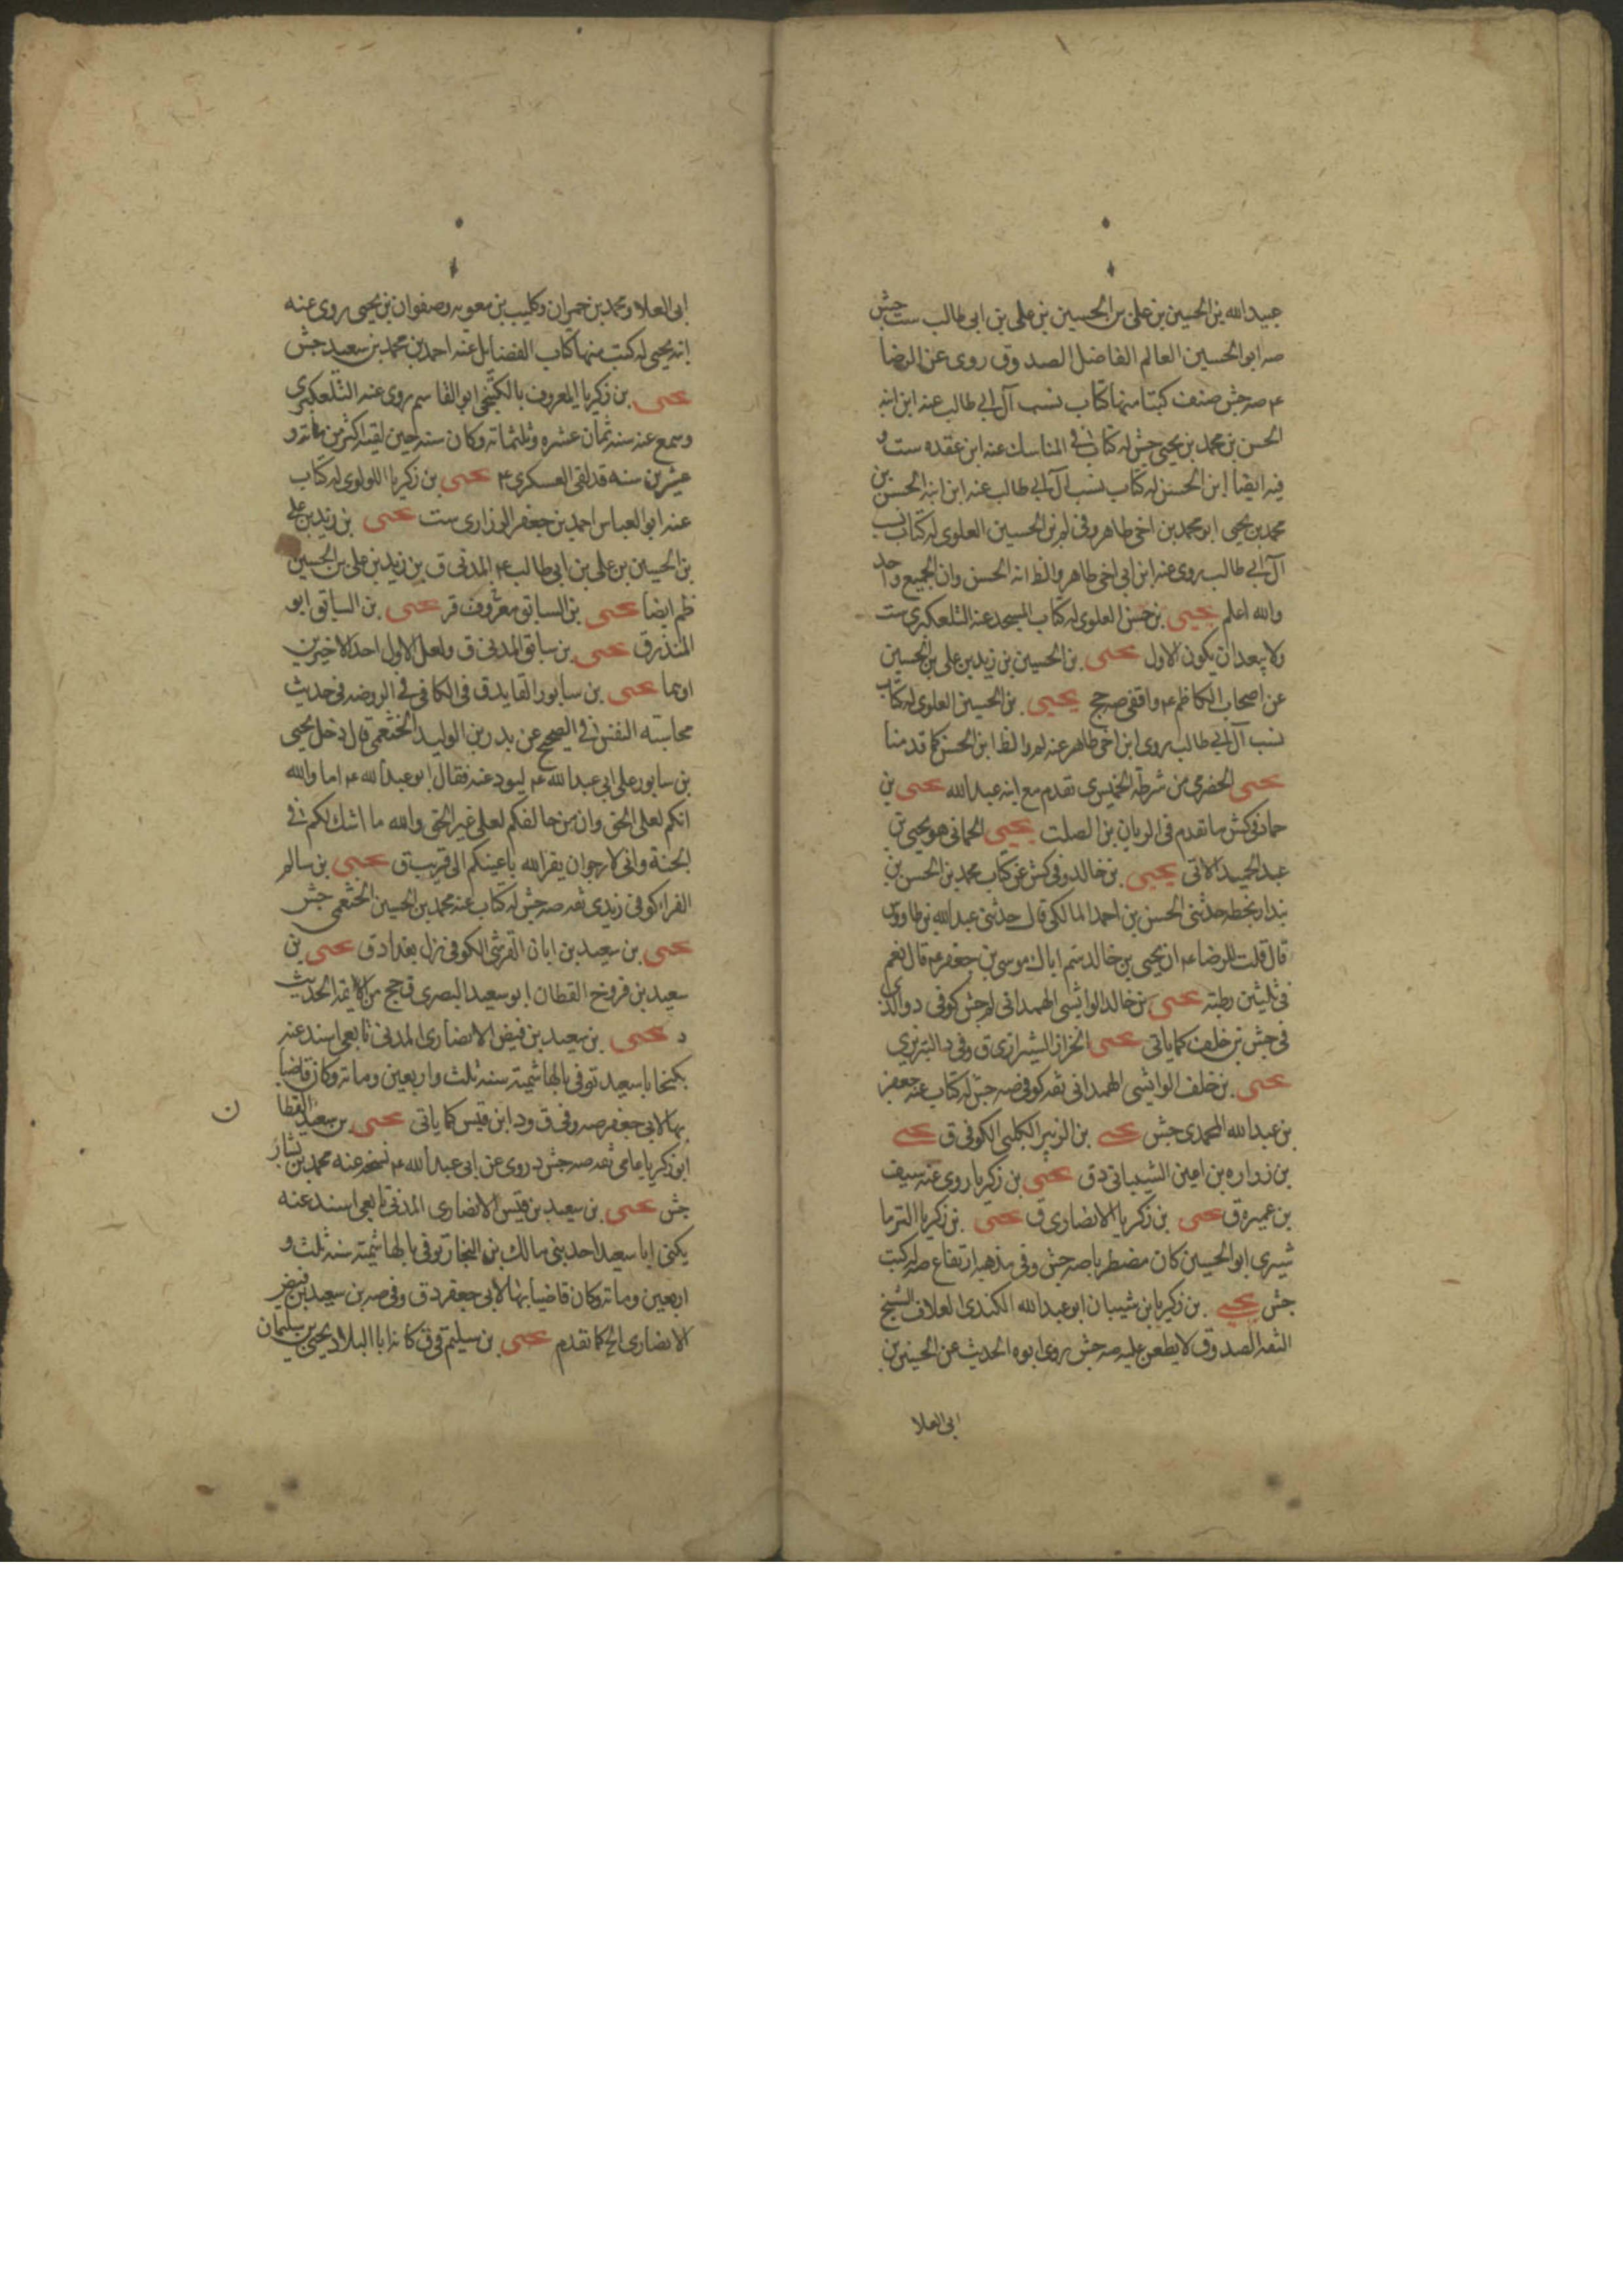 عبيد الله بن الحسين بن علي بن الحسين بن علي بن ابي طالب ست جش
صه ابو الحسين العالم الفاضل الصدوق روى عن الرضا
ع صه جش صنف كتبا منها كتاب نسب آل ابي طالب عنه ابن ابنه
الحسن بن محمد بن يحيى جش له كتاب في المناسك عنه ابن عقده ست و
فيه ايضا ابن الحسن له كتاب نسب آل ابي طالب عنه ابن ابنه الحسن بن
محمد بن يحيى ابو محمد بن اخى طاهر وفى لم بن الحسين العلوى له كتاب نسب
آل ابي طالب روى عنه ابن ابى اخى طاهر والظ انه الحسن وان الجميع واحد
والله اعلم يحيى بن حسن العلوى له كتاب المسجد عنه التلعكبرى ست
ولا يبعد ان يكون الاول يحيى بن الحسين بن زيد بن علي بن الحسين
من اصحاب الكاظم ع واقفى صه جج يحيى بن الحسين العلوى له كتاب
نسب آل ابي طالب روى ابن اخى طاهر عنه لم والظ ابن الحسن كما قدمنا
يحيى الحضرمى من شرطة الخميس ى تقدم مع ابنه عبد الله يحيى بن
حماد فى كش ما تقدم فى الريان بن الصلت يحيى الحمانى هو يحيى بن
عبد الحميد الاتى يحيى بن خالد وفى كش عن كتاب محمد بن الحسن بن
بندار بخطه حدثنى الحسن بن احمد المالكى قال حدثنى عبد الله بن طاووس
قال قلت للرضا ع ان يحيى بن خالد سم اباك موسى بن جعفر ع قال نعم
فى ثلثين رطبة يحيى بن خالد الوابشى الهمدانى لم جش كوفى د والذى
فى جش بن خلف كما ياتى يحيى الخزاز الشيرازى ق وفى د التبريزى
يحيى بن خلف الوابشى الهمدانى ثقه كوفى صه جش له كتاب عنه جعفر
بن عبد الله المحمدى جش يحيى بن الزبير الكلبى الكوفى ق يحيى
بن زراره بن اعين الشيبانى د ق يحيى بن زكريا روى عنه سيف
بن عميرة ق يحيى بن زكريا الانصارى ق يحيى بن زكريا الترما
شيرى ابو الحسين كان مضطربا صه جش وفى مذهبه ارتفاع صه له كتب
جش يحيى بن زكريا بن شيبان ابو عبد الله الكندى العلاف الشيخ
الثقه الصدوق لا يطعن عليه صه جش روى ابوه الحديث عن الحسين بن
ابى العلا
ابى العلا ومحمد بن حمران وكليب بن معويه وصفوان بن يحيى روى عنه
ابنه يحيى له كتب منها كتاب الفضايل عنه احمد بن محمد بن سعيد جش
يحيى بن زكريا المعروف بالكنجى ابو القاسم روى عنه التلعكبرى
وسمع عنه سنه ثمان عشره وثلثمائه وكان سنه حين لقيه اكثر من مائه و
عشرين سنه قد لقى العسكرى ع يحيى بن زكريا اللولوى له كتاب
عنه ابو العباس احمد بن جعفر الرزازى ست يحيى بن زيد بن علي
بن الحسين بن علي بن ابى طالب ع المدنى ق بن زيد بن علي بن الحسين
ظم ايضا يحيى بن السابق معروف قر يحيى بن السابق ابو
المنذر ق يحيى بن سابق المدنى ق ولعل الاول احد الاخيرين
او هما يحيى بن سابور القايد ق فى الكافى فى الروضه فى حديث
محاسبة النفس فى الصحيح عن بدر بن الوليد الخثعمى قال دخل يحيى
بن سابور على ابى عبد الله ع ليودعه فقال ابو عبد الله ع اما والله
انكم لعلى الحق وان من خالفكم لعلى غير الحق والله ما اشك لكم فى
الجنة وانى لارجو ان يقر الله باعينكم الى قريب ق يحيى بن سالم
الفراء كوفى زيدى ثقه صه جش له كتاب عنه محمد بن الحسين الخثعمى جش
يحيى بن سعيد بن ابان القرشى الكوفى نزل بغداد ق يحيى بن
سعيد بن فروخ القطان ابو سعيد البصرى ق جج من ائمة الحديث
د يحيى بن سعيد بن فيض الانصارى المدنى تابعى اسند عنه
يكنى ابا سعيد توفى بالهاشمية سنه ثلث واربعين ومائه وكان قاضيا
بها لابى جعفر صه وفى ق ود ابن قيس كما ياتى يحيى بن سعيد القطا
ن
ابو زكريا عامى ثقه صه جش د روى عن ابى عبد الله ع نسخه عنه محمد بن بشار
جش يحيى بن سعيد بن قيس الانصارى المدنى تابعى اسند عنه
يكنى ابا سعيد احد بنى مالك بن النجار توفى بالهاشمية سنه ثلث و
اربعين ومائه وكان قاضيا بها لابى جعفر د ق وفى صه بن سعيد بن فيض
الانصارى الخ كما تقدم يحيى بن سليم ق كانه ابا البلاد يحيى بن سليمان